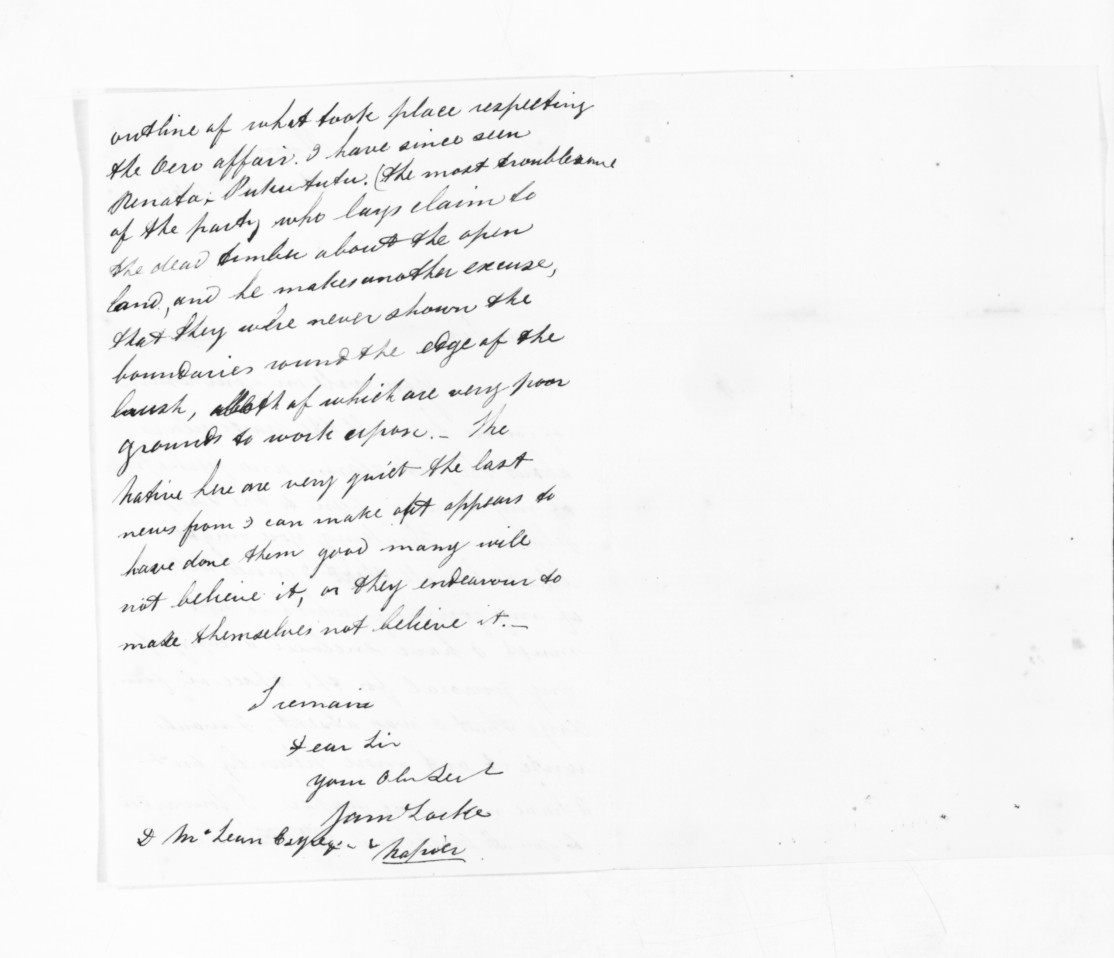 outline of what took place respecting
the Oero affair. I have since seen
Renata Pukututu. (the most troublesome
of the party who lays claim to
the dead timber about the open
land, and he makes another excuse,
that they were never shown the
boundaries round the edge of the
bush, both of which are very poor
grounds to work upon. – The
native here are very quiet the last
news from I can make out appears to
have done them good many will
not believe it, or they endeavour to
make themselves not believe it. –
I remain
Dear Sir
Your Ob Sert
Sam Locke
D McLean Esq
Napier